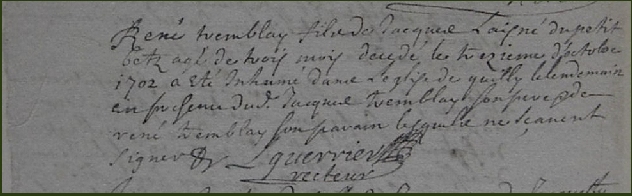 René tremblay fils de Jacque L'aisné du petit
betz agé de trois mois decedé le treisieme d'octobre
1702 a eté Inhumé dans L'eglise de quilly le lendemain
en presence dud. Jacque tremblay son pere & de
rené tremblay son parain lesquels ne sçauent
signer &
L guerrier
recteur